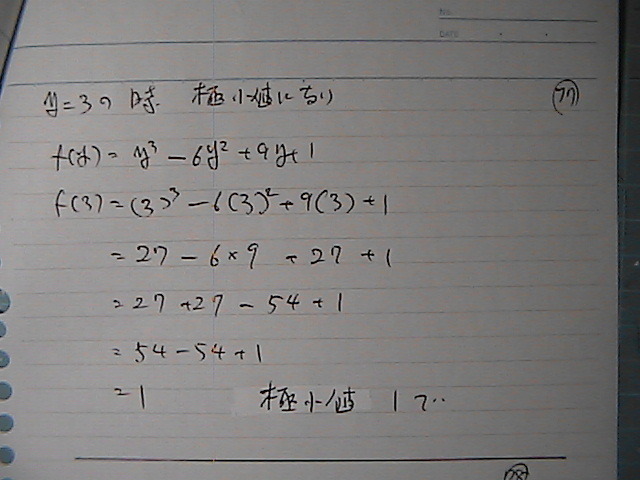 NO.
DATE
y=3の時 極小値になり 77
f(y)= y³ - 6y² + 9y + 1
f(3) = (3)³ - 6(3)² + 9(3) + 1
= 27 - 6×9 + 27 + 1
= 27 + 27 - 54 + 1
= 54 - 54 + 1
= 1 極小値 1で‥